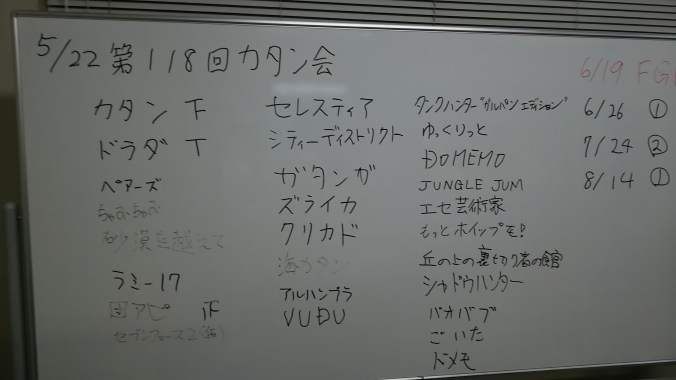 5/22 第118回カタン会
カタン 下
ドラダ T
ペアーズ
ちゃおちゃお
砂漠を越えて
ラミー17
アピ 正
セレスティア
シティーディストリクト
ガタンガ
ズライカ
クリカド
海カタン
アルハンブラ
VUDU
タンクハンター"ガルパンエディション"
ゆっくりっと
DOMEMO
JUNGLE JUM
エセ芸術家
もっとホイップを!
丘の上の裏切り者の館
シャドウハンター
バオバブ
ごいた
ドメモ
6/19 FG
6/26 ①
7/24 ②
8/14 ①